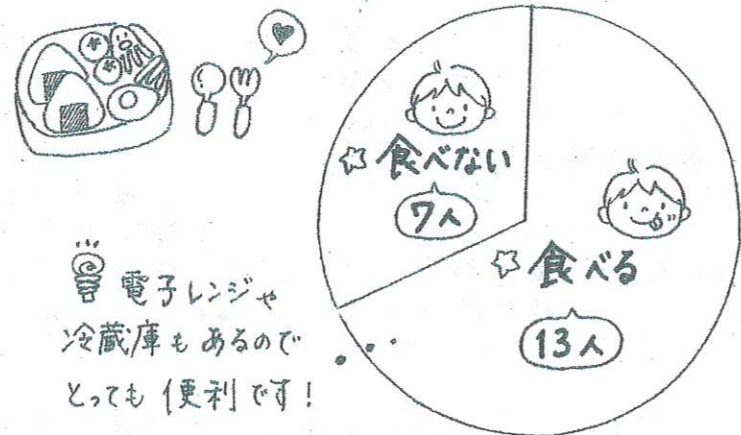 ☆食べない
7人
☆食べる
13人
電子レンジや
冷蔵庫もあるので
とっても便利です!